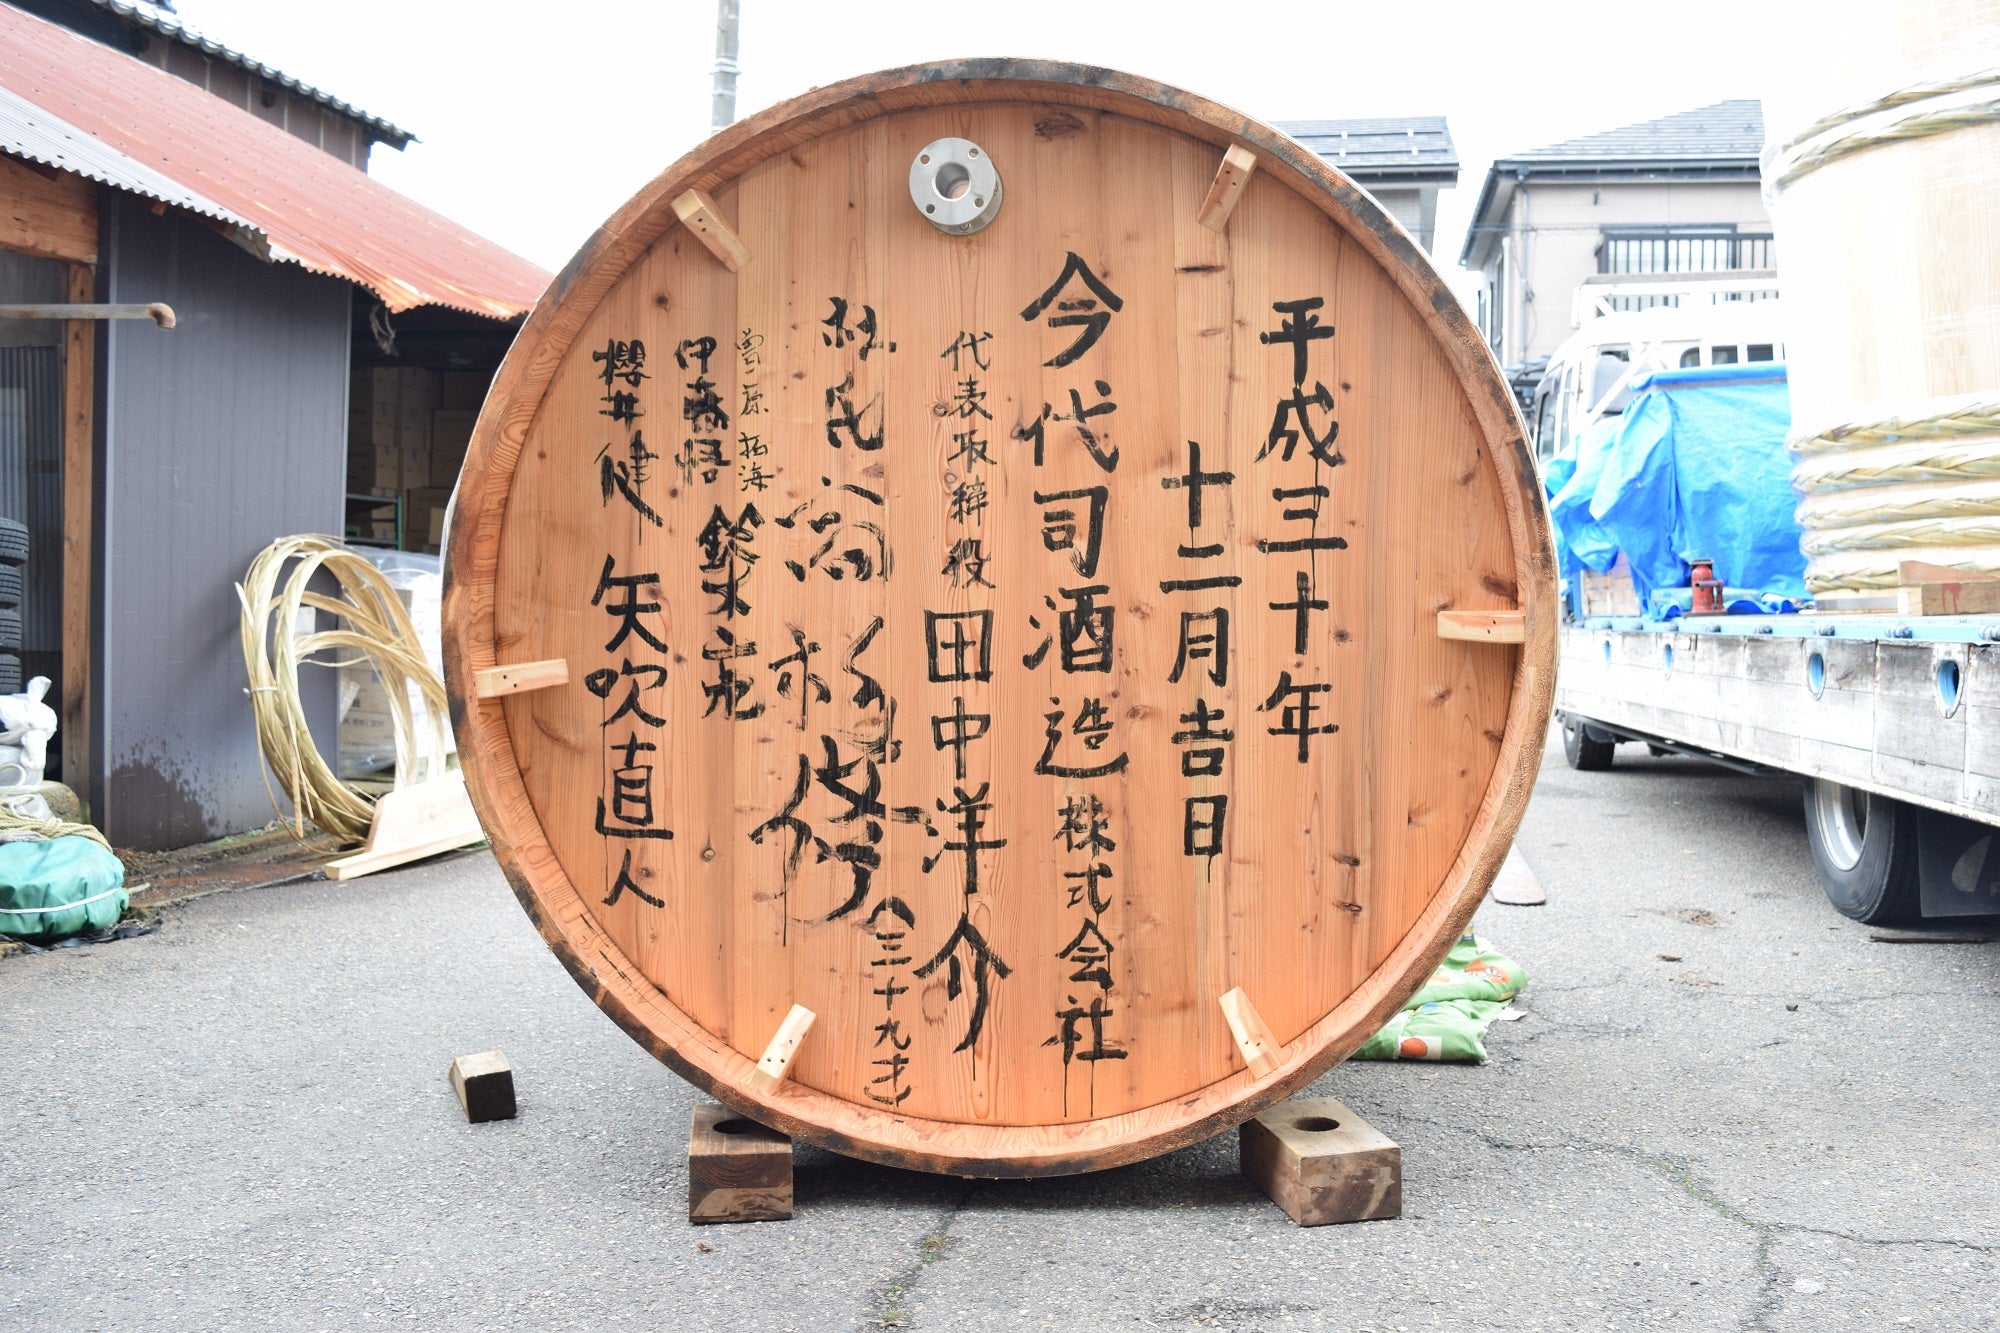 平成三十年
十二月吉日
今代司酒造株式会社
代表取締役 田中洋介
杜氏
三十九才
拓海
伊藤悟 鈴木
櫻井健 矢吹直人